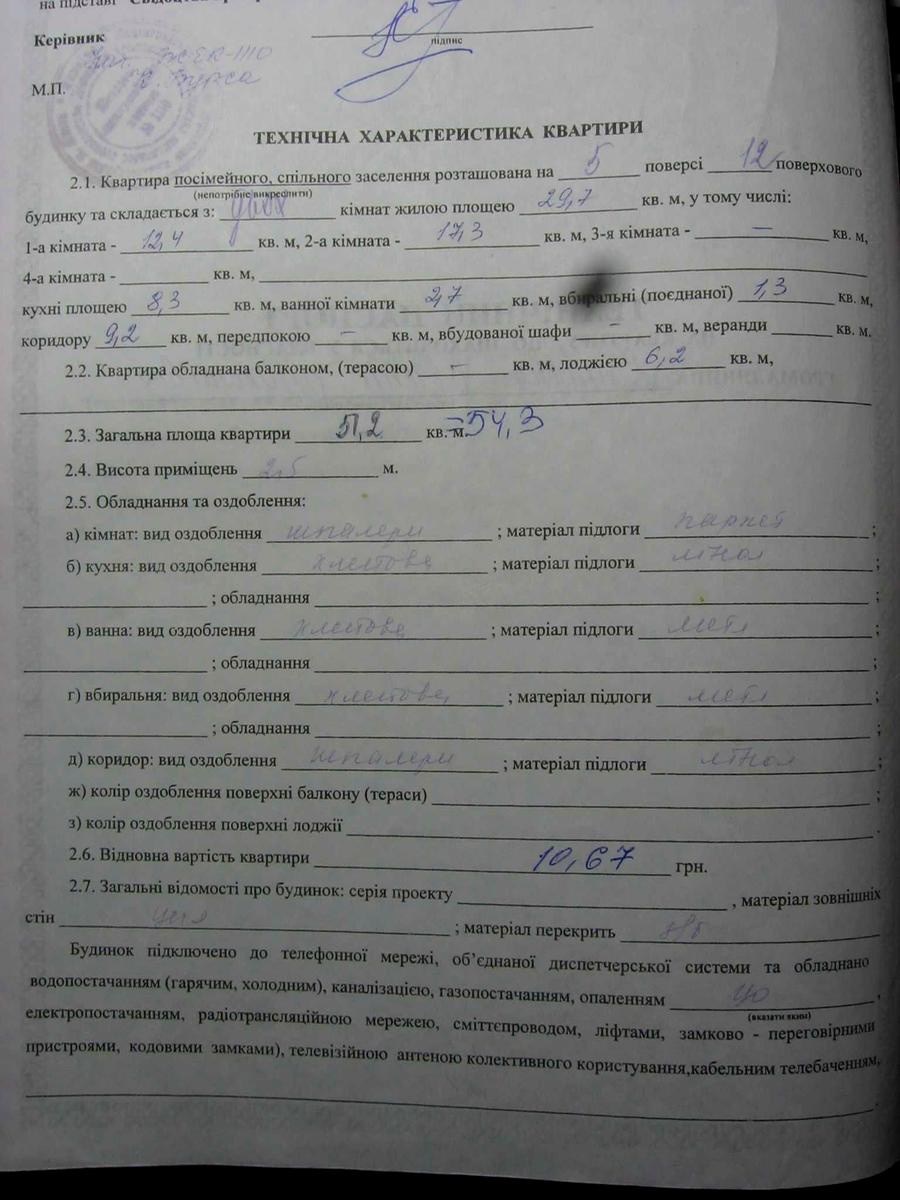 на підставі
Керівник
підпис
М.П.
ТЕХНІЧНА ХАРАКТЕРИСТИКА КВАРТИРИ
2.1. Квартира посімейного, спільного заселення розташована на 5 поверсі 12 поверхового
(непотрібне викреслити)
будинку та складається з: двох кімнат жилою площею 29,7 кв. м, у тому числі:
1-а кімната - 12,4 кв. м, 2-а кімната - 17,3 кв. м, 3-я кімната - — кв. м,
4-а кімната - кв. м,
кухні площею 8,3 кв. м, ванної кімнати 2,7 кв. м, вбиральні (поєднаної) 1,3 кв. м,
коридору 9,2 кв. м, передпокою — кв. м, вбудованої шафи — кв. м, веранди кв. м.
2.2. Квартира обладнана балконом, (терасою) — кв. м, лоджією 6,2 кв. м,
2.3. Загальна площа квартири 51,2 кв. м. 54,3
2.4. Висота приміщень 2,5 м.
2.5. Обладнання та оздоблення:
а) кімнат: вид оздоблення шпалери ; матеріал підлоги паркет ;
б) кухня: вид оздоблення клейова ; матеріал підлоги лінол ;
; обладнання ;
в) ванна: вид оздоблення клейова ; матеріал підлоги метл ;
; обладнання ;
г) вбиральня: вид оздоблення клейова ; матеріал підлоги метл ;
; обладнання ;
д) коридор: вид оздоблення шпалери ; матеріал підлоги лінол ;
ж) колір оздоблення поверхні балкону (тераси) ;
з) колір оздоблення поверхні лоджії .
2.6. Відновна вартість квартири 10,67 грн.
2.7. Загальні відомості про будинок: серія проекту , матеріал зовнішніх
стін ; матеріал перекрить
Будинок підключено до телефонної мережі, об’єднаної диспетчерської системи та обладнано
водопостачанням (гарячим, холодним), каналізацією, газопостачанням, опаленням цо ,
(вказати яким)
електропостачанням, радіотрансляційною мережею, сміттєпроводом, ліфтами, замково - переговірними
пристроями, кодовими замками), телевізійною антеною колективного користування,кабельним телебаченням,